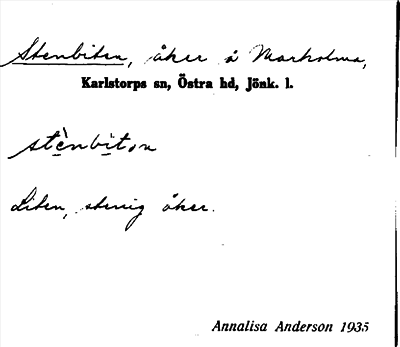 Stenbiten, åker å Marholma,
Karlstorps sn, Östra hd, Jönk. l.
stènbitən
Liten, stenig åker.
Annalisa Anderson 1935